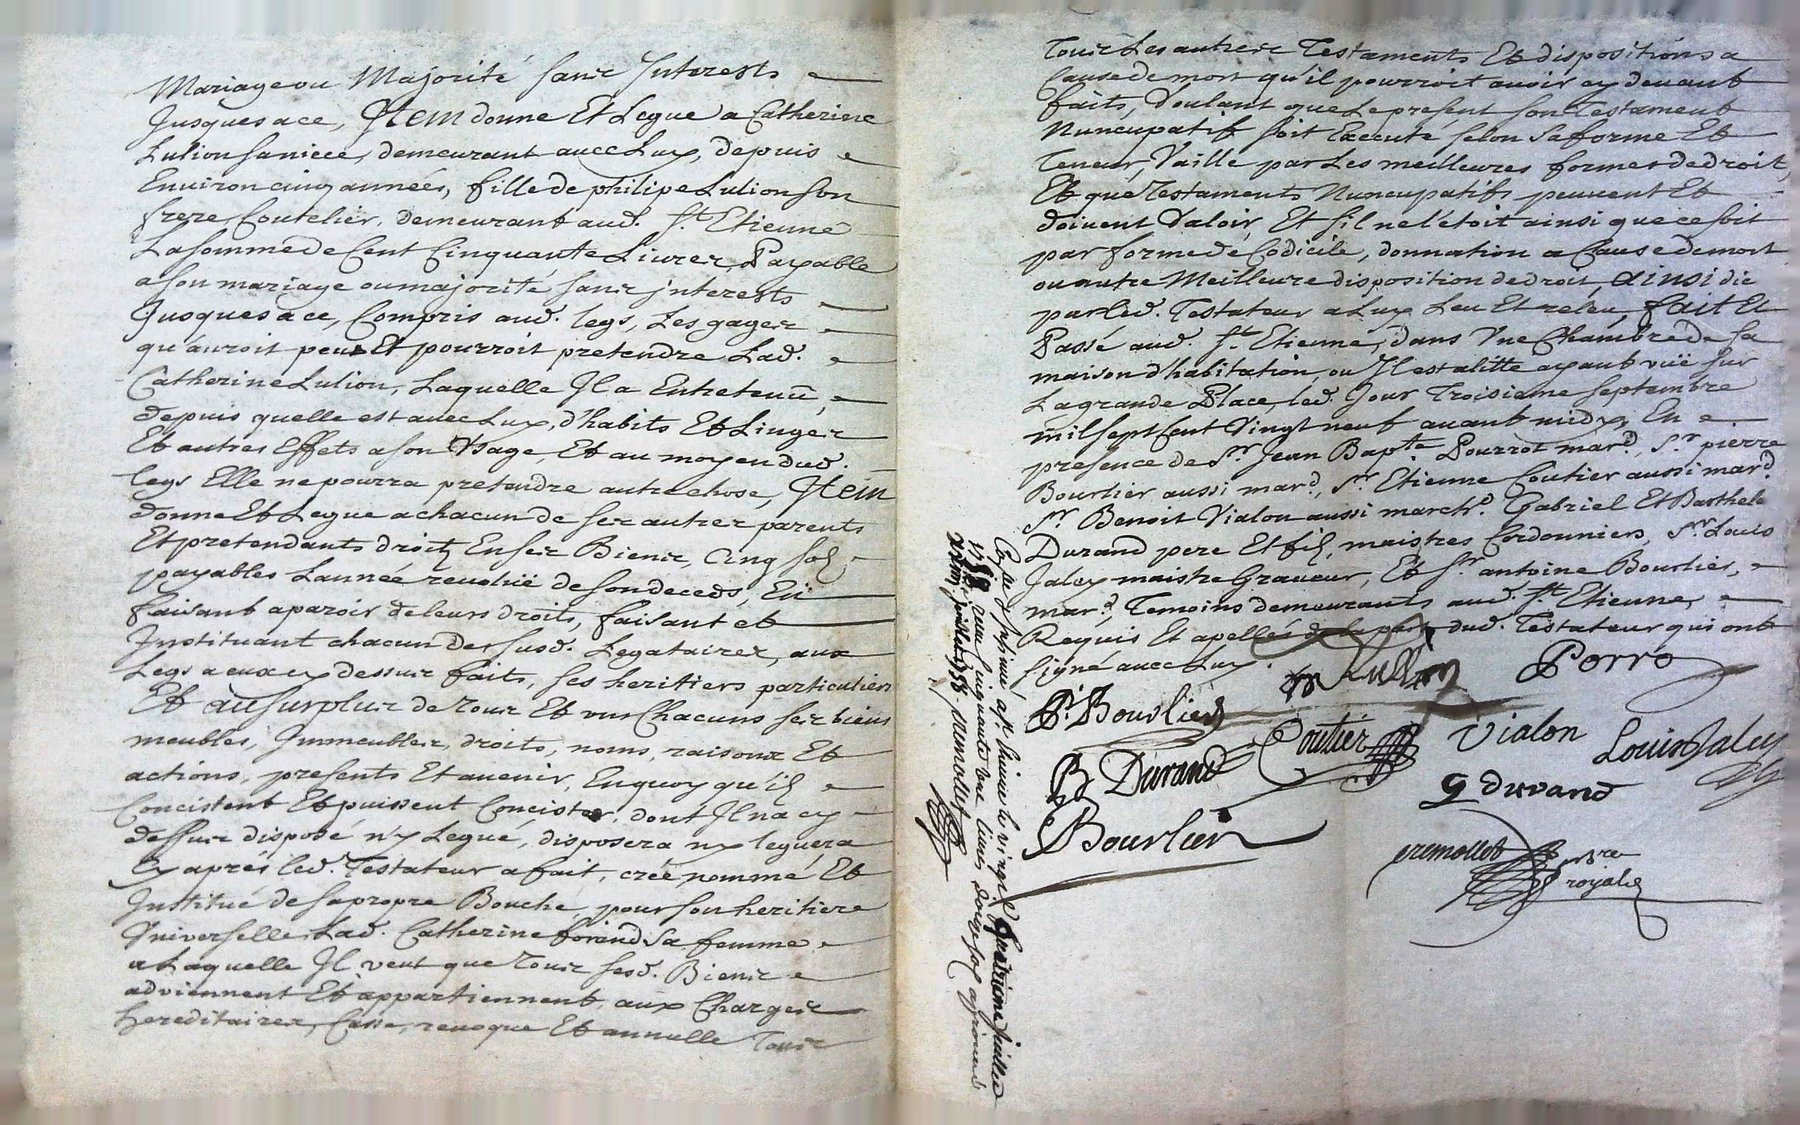 Mariage ou Majorité sans Interests
Jusques a ce, Item donne Et Legue a Catherine
Lulion sa niece, demeurant avec Luy, depuis
Environ cinq années, fille de philipe Lulion son
frere Coutelier, demeurant aud. St. Etienne
La somme de Cent Cinquante Livres, Payable
a son mariage ou majorité sans jnterests
Jusques a ce, Compris aud. legs, Les gages
qu'auroit peu Et pourroit pretendre Lad.
Catherine Lulion, Laquelle Il a Entretenû,
depuis quelle est avec Luy, d'habits Et Linges
Et autres Effets a son Vsage, Et au moyen dud.
legs Elle ne pourra pretendre autre chose, Item
donne Et Legue a chacun de ses autres parents
Et pretendants droits En ses Biens, Cinq sols
payables Lannée revolüe de son deceds, En
faisant aparoir de leurs droits, faisant et
Instituant chacun des susd. Legataires, aux
Legs a eux cy dessus faits, ses heritiers particuliers
Et au surplus de tous Et vns Chacuns ses biens
meubles, Immeubles, droits, noms, raisons Et
actions, presents Et avenir, Enquoy qu'ils
Concistent Et puissent Concister, dont Il n'a cy
dessus disposé n'y Legué, disposera n'y leguera
Cy aprés led. Testateur a fait, créé nommé Et
Institué de sa propre Bouche, pour son heritiere
Vniverselle, Lad. Catherine forend Sa femme
a Laquelle Il veut que tous sesd. Biens
adviennent Et appartiennent, aux Charges
hereditaires, Casse, revoque Et annulle Tous
Tous Les autres Testaments Et dispositions a
Cause de mort qu'il pourroit avoir cy devant
faits, Voulant que Le present son Testament
Nuncupatif soit Executé selon Sa forme Et
Teneur, Vaille par Les meilleures formes de droit,
Et que Testaments Nuncupatifs peuvent Et
doivent Valoir, Et s'il ne l'étoit ainsi que ce soit
par forme de Codicile, donnation a Cause de mort
ou autre Meilleure disposition de droit, Ainsi dic
par led. Testateur a Luy Leu Et releu, fait Et
Passé aud. St. Etienne, dans Vne Chambre de Sa
maison d'habitation, ou Il est alitté ayant vüe sur
La grande Place, led. Jour Troisiéme Septembre
mil sept Cent Vingt neuf avant midy, En
presence de Sr. Jean Bapte. Pourrot mard., Sr. pierre
Bourlier aussi mard., Sr. Etienne Coutier aussi mard.
Sr. Benoit Vialon aussi marchd. Gabriel Et Barthele
Durand pere Et fils, maistres Cordonniers, Sr. Louis
Jaley maistre Graveur, Et Sr. antoine Bourlier,
mard., Temoins demeurants aud. St. Etienne,
Requis Et apellés de la part dud. Testateur qui ont
signé avec Luy.
Porro
Pr. Bourlier
Coutier
Vialon
Louis Jaley
B Durand
G durand
Bourlier
cremollet
royal
St. Etienne le vingt quatrieme juillet
cinquante une livres sols
juillet 1758. cremollet